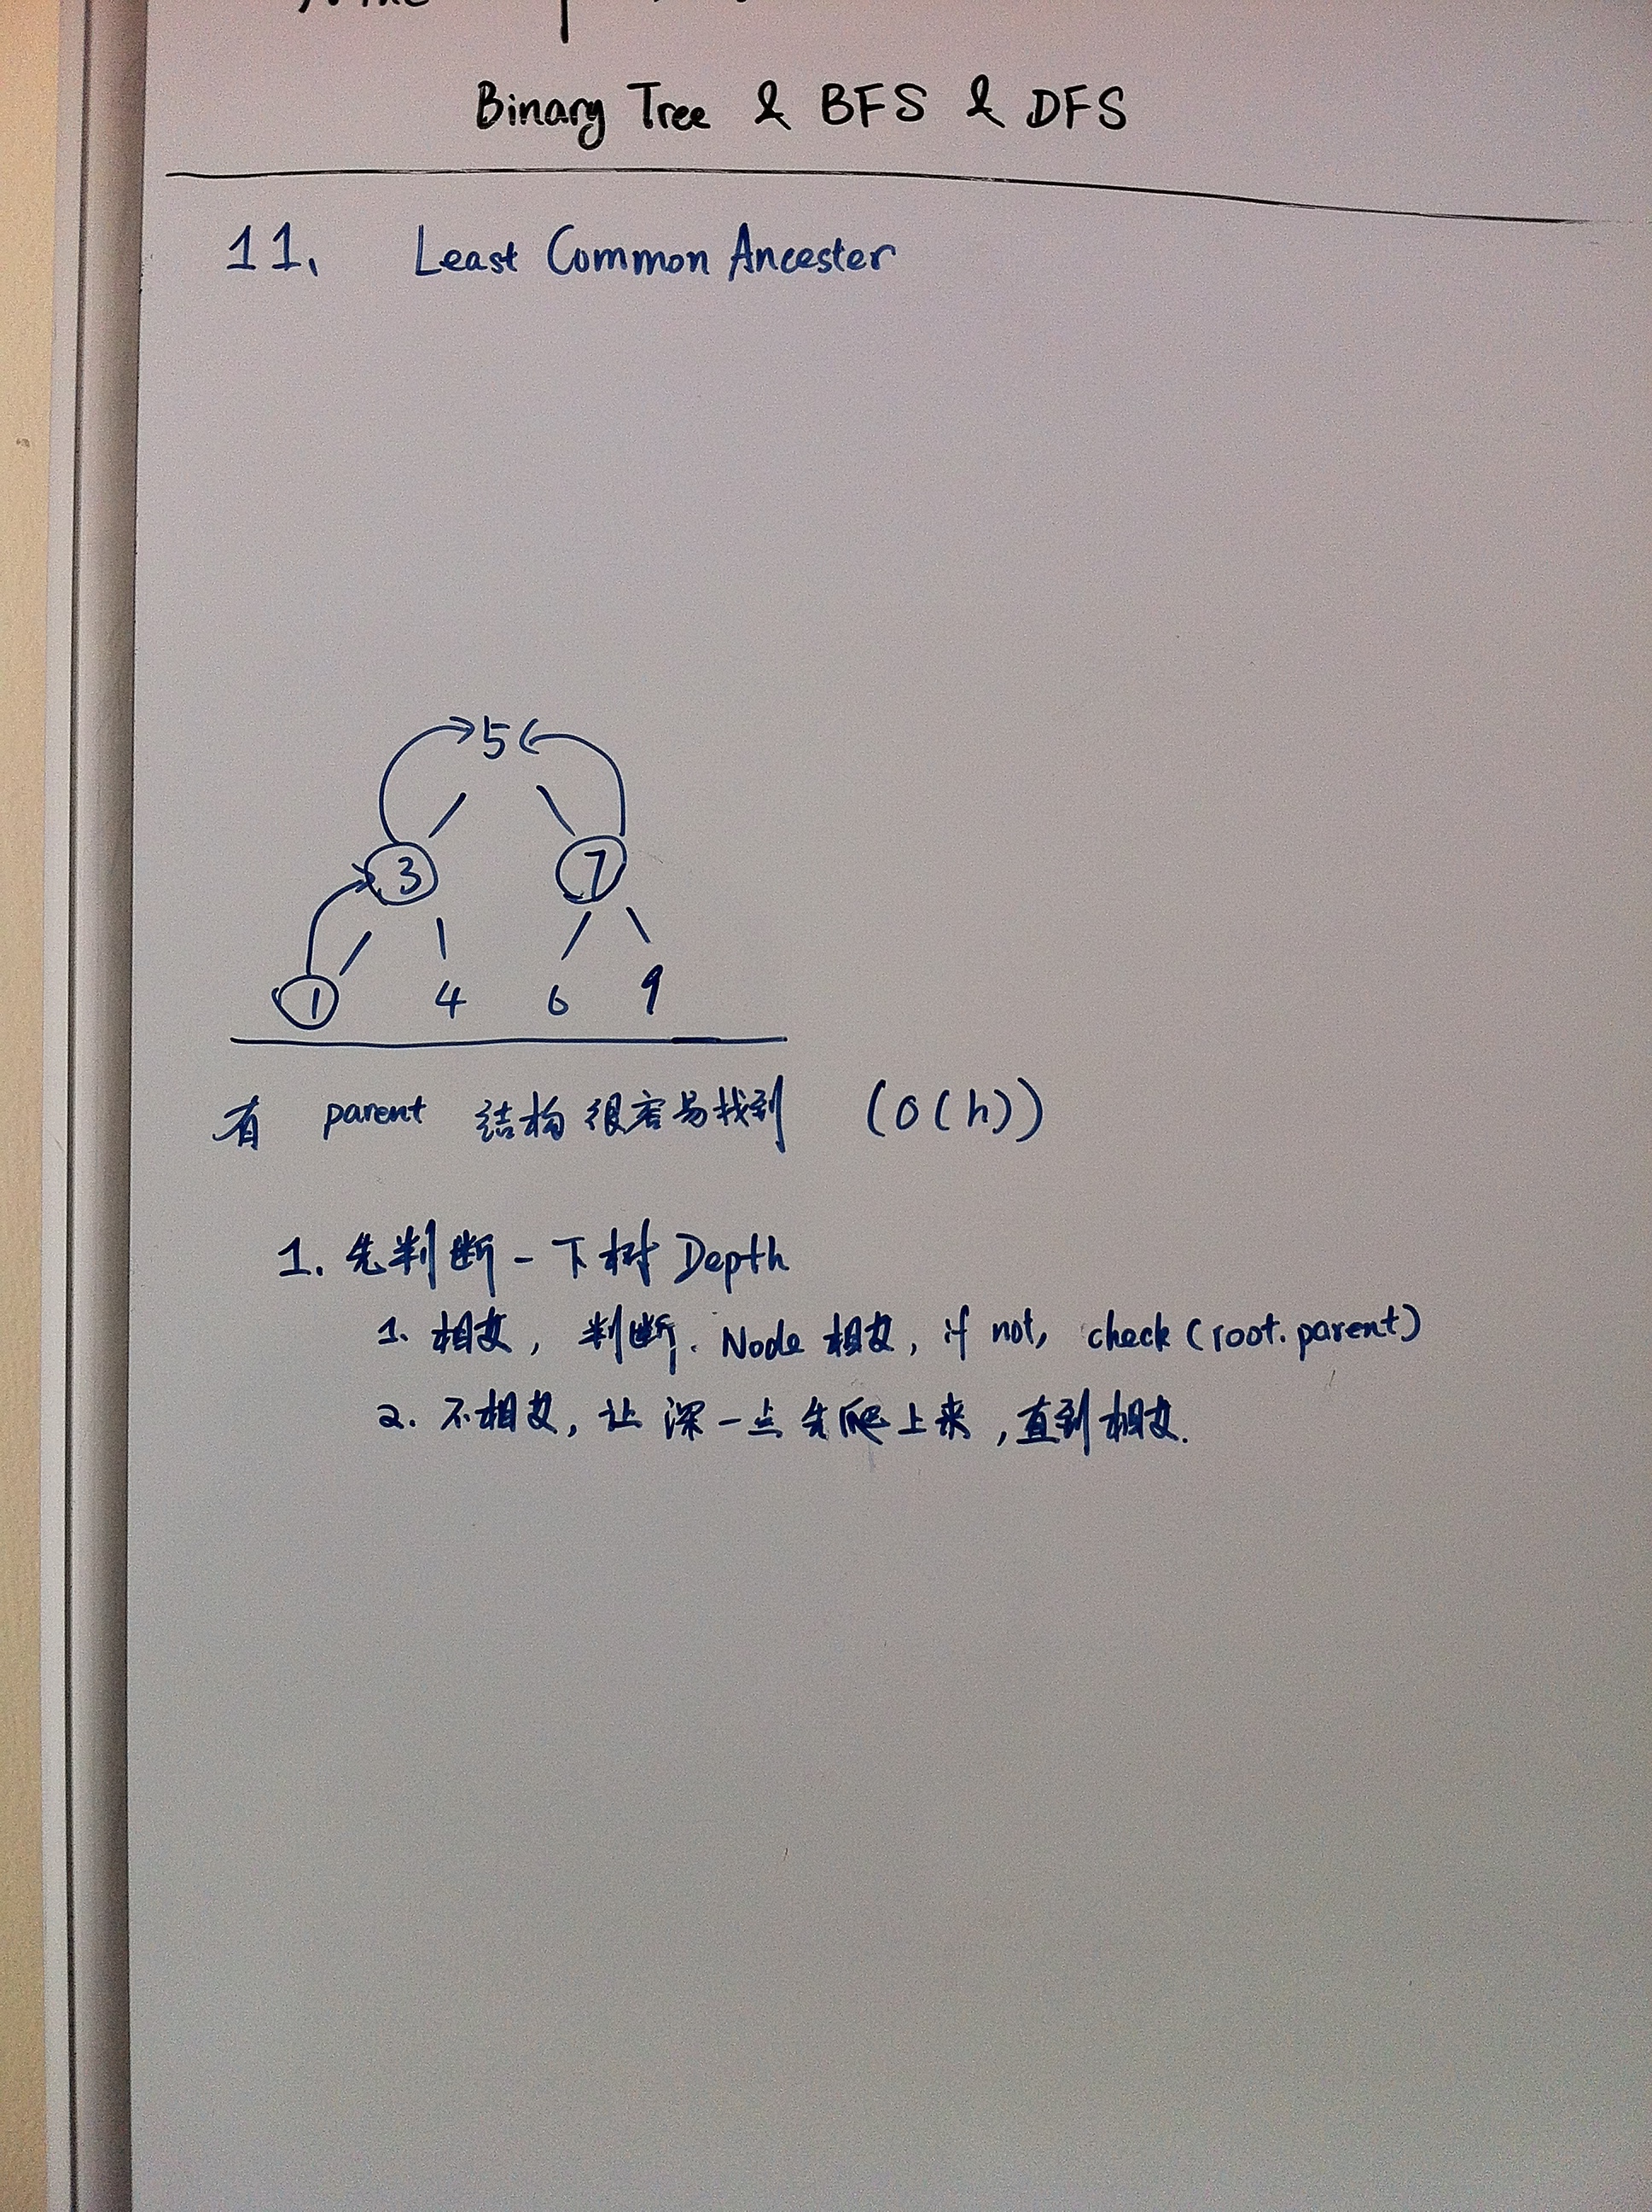 Binary Tree & BFS & DFS
11. Least Common Ancester
5
3 7
1 4 6 9
有 parent 结构很容易找到 (O(h))
1. 先判断一下树 Depth
1. 相交, 判断. Node 相交, if not, check (root.parent)
2. 不相交, 让深一点先爬上来, 直到相交.